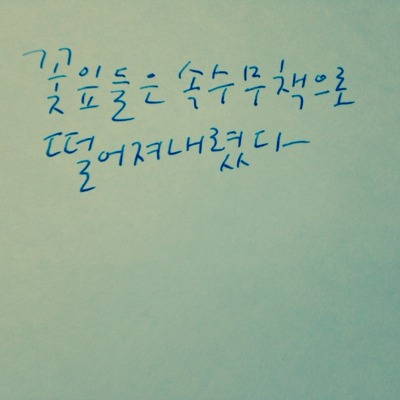 꽃잎들은 속수무책으로
떨어져내렸다